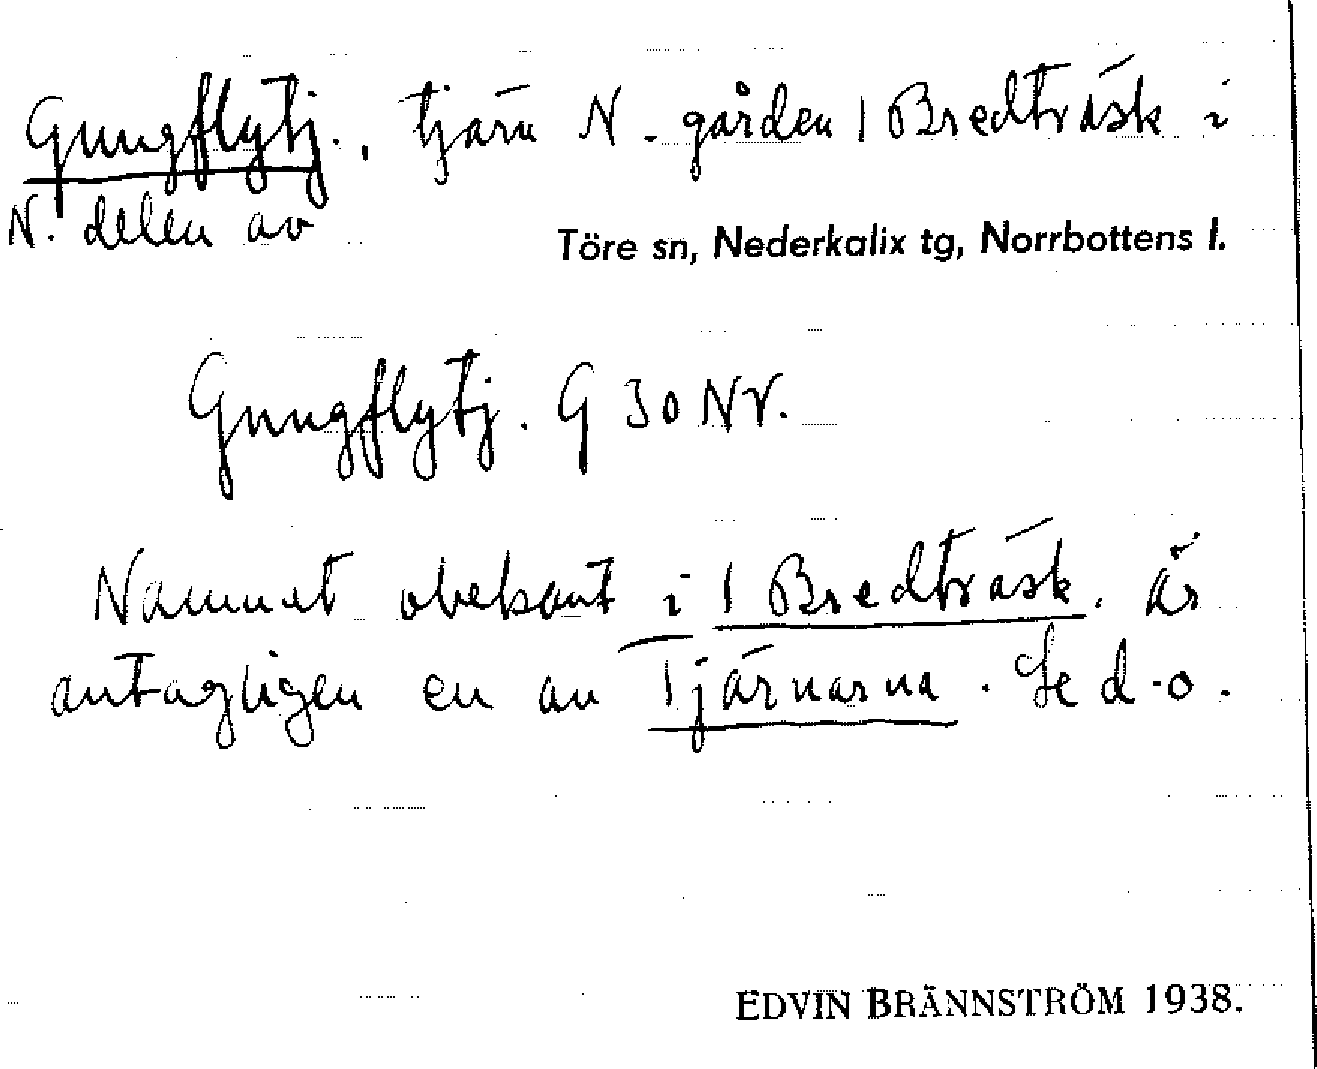 Gungflytj., tjärn N. gården 1 Bredträsk i
N. delen av
Töre sn, Nederkalix tg, Norrbottens l.
Gungflytj. G 30 NV.
Namnet obekant i 1 Bredträsk. är
antagligen en av Tjärnarna. Se d.o.
EDVIN BRÄNNSTRÖM 1938.